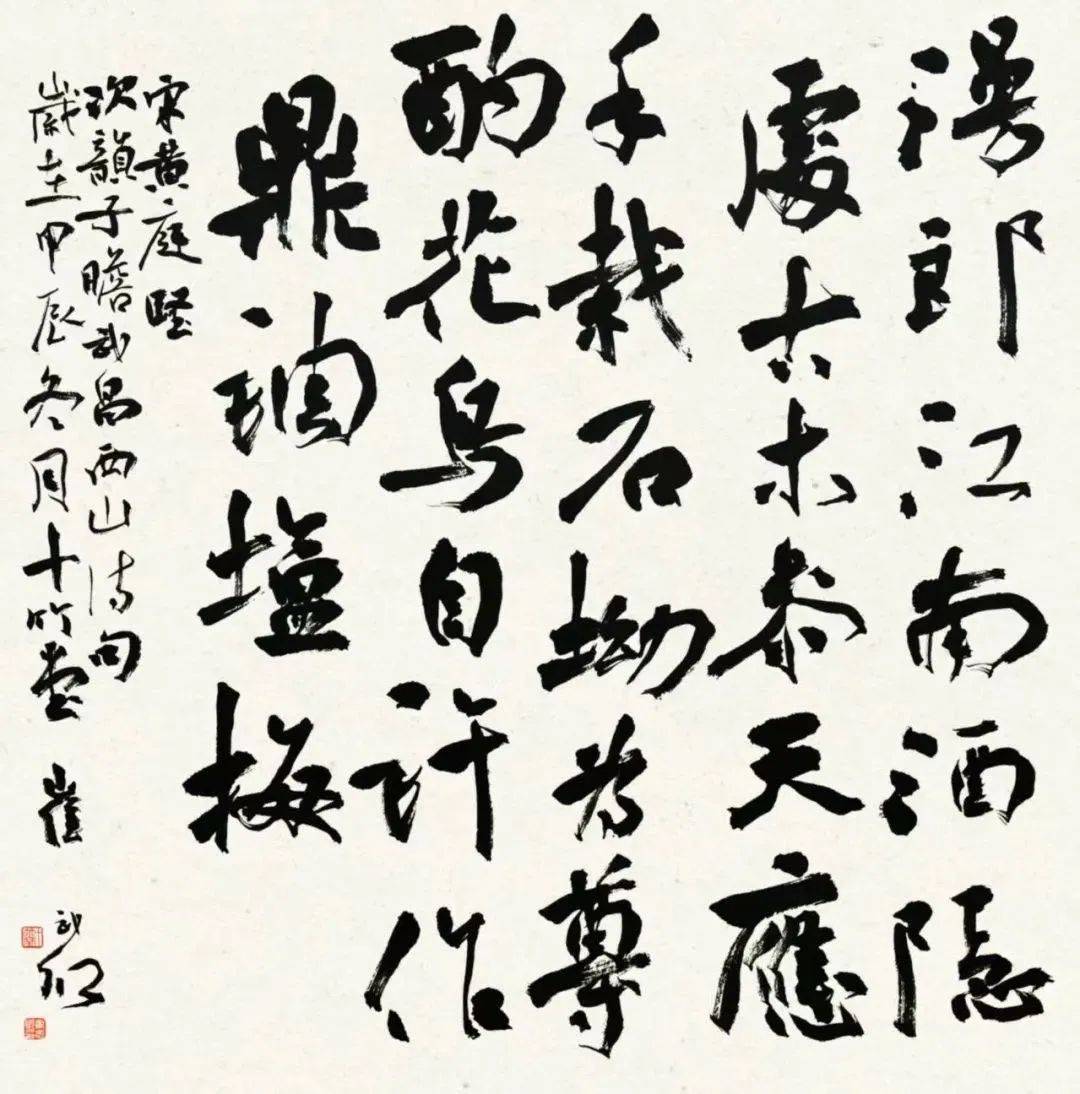 漫郎江南酒隱
處古木參天應
手栽石坳為尊
酌花鳥自許作
鼎調塩梅
宋黃庭堅
次韻子瞻武昌西山詩句
歲在甲辰冬月十竹堂 崔